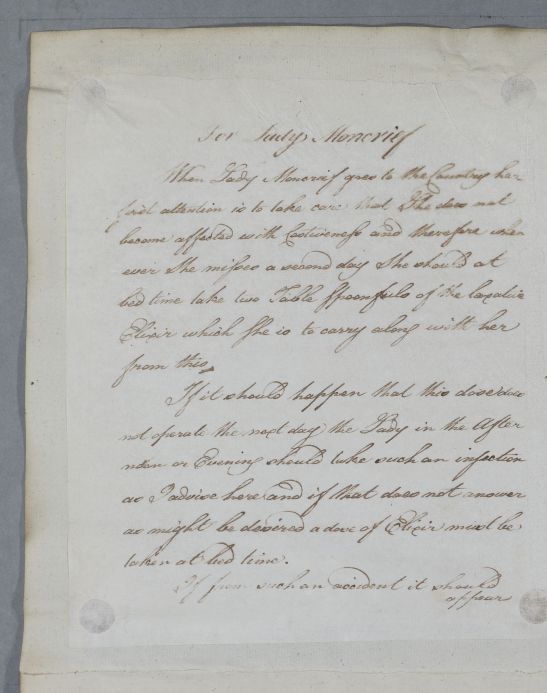 For Lady Moncrief
When Lady Moncrief goes to the Country her
first attention is to take care that She does not
become affected with Costiveness and therefore when
ever She misses a second day She should at
bed time take two Table Spoonfuls of the laxative
Elixir which She is to carry along with her
from this
If it should happen that this dose does
not operate the next day the Lady in the After
noon or Evening should take such an injection
as I advise here and if that does not answer
as might be desired a dose of Elixir must be
taken at bed time.
If from such an accident it should
appear